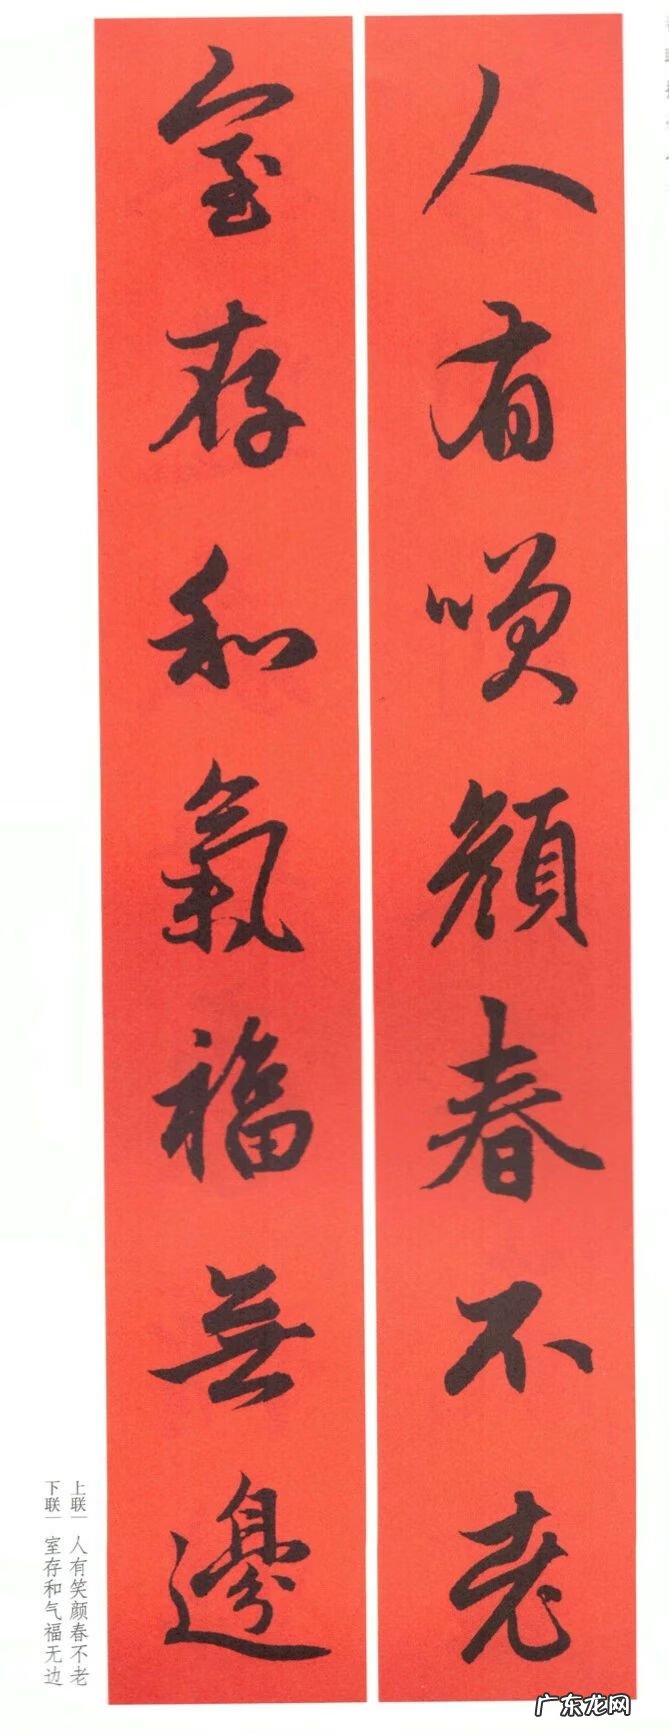 人有咲顔春不老
室存和氣福無邊
上联｜人有笑颜春不老
下联｜室存和气福无边
广东龙网